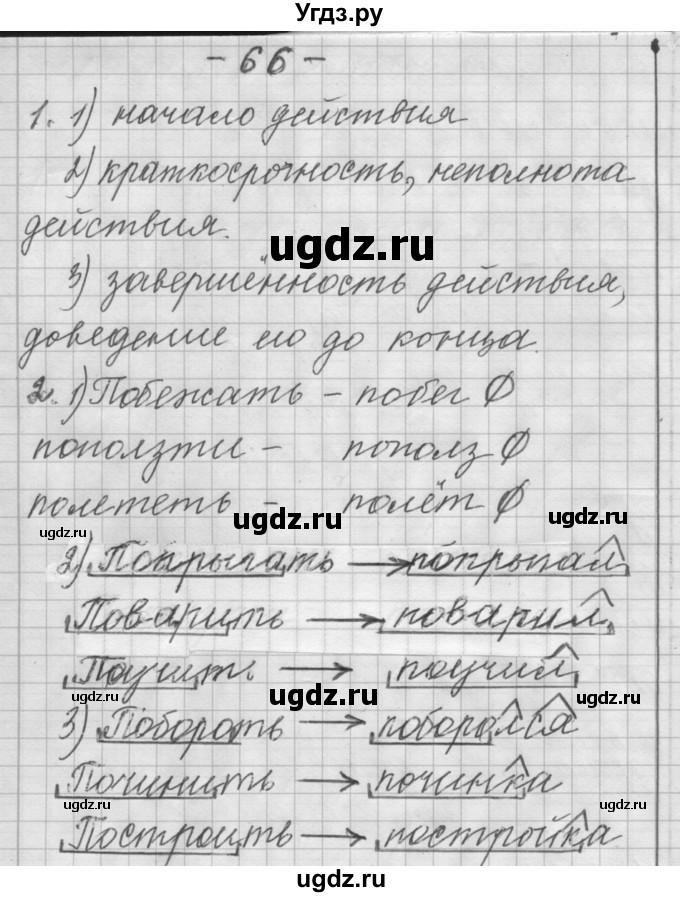 Угдз.ру
- 66 -
1. 1) начало действия
2) краткосрочность, неполнота
действия.
ugdz.ru
3) завершённость действия,
доведение его до конца.
2. 1) Побежать - побег ∅
поползти - пополз ∅
полететь - полёт ∅
ugdz.ru ugdz.ru ugdz.ru
2) Попрыгать → попрыгал
Поварить → поварил
Поучить → поучил
ugdz.ru ugdz.ru ugdz.ru
3) Побороть → поборолся
Починить → починка
ugdz.ru ugdz.ru
Построить → постройка
ugdz.ru